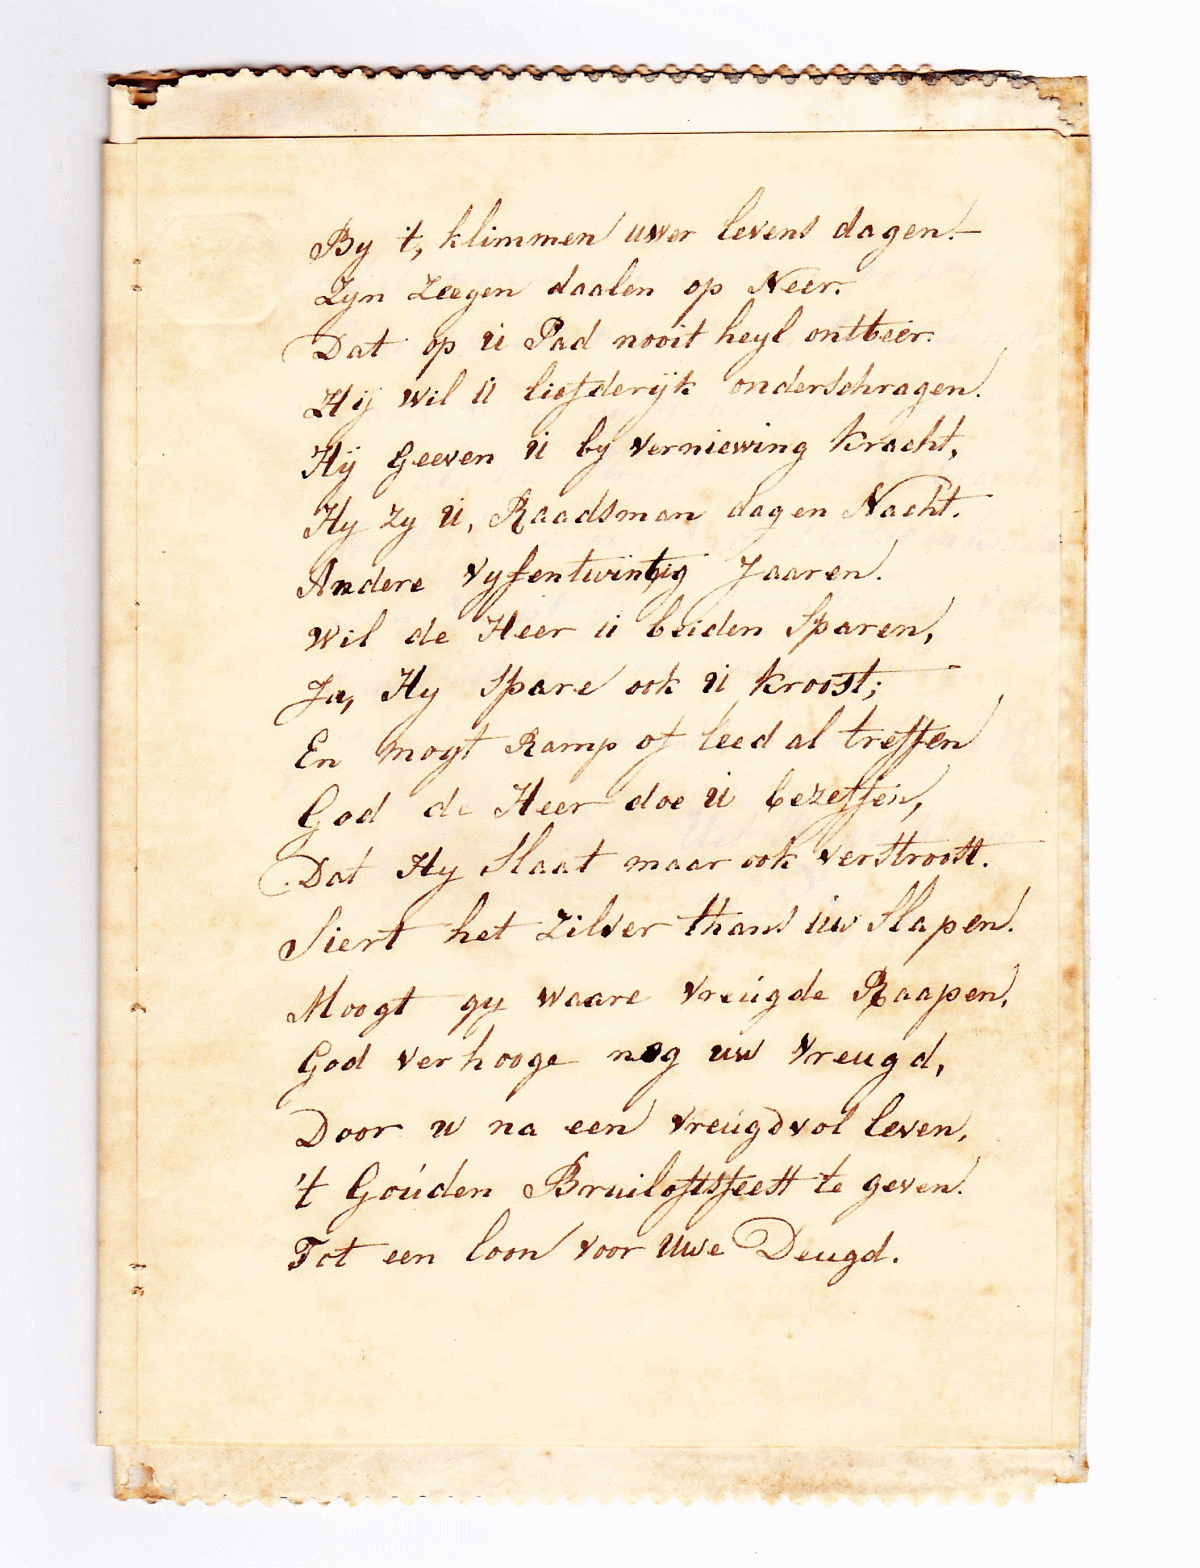 By 't, klimmen uwer levens dagen.—
Zyn Zeegen daalen op Neer.
Dat op ú Pad nooit heyl ontbeer.
Hij wil ú liefderijk onderschragen.
Hij Geeven ú by verniewing kracht,
Hy zy ú, Raadsman dag en Nacht.
Andere vyfentwintig Jaaren.
Wil de Heer ú beiden Sparen,
Ja, Hy Spare ook ú kroost;
En mogt Ramp of leed al treffen
God de Heer doe ú bezeffen,
Dat Hy Slaat maar ook verstroost.
Siert het zilver thans úw Slapen.
Moogt gy waare vreúgde Raapen,
God verhooge nog uw vreugd,
Door u na een vreúgdvol leven,
't Goúden Bruiloftsfeest te geven.
Tot een loon voor uwe Deugd.